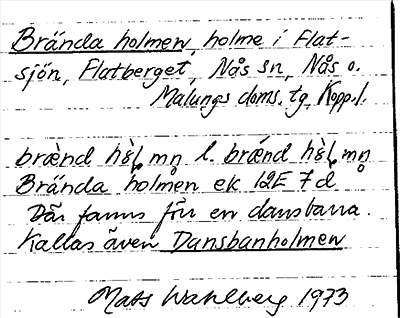 Brända holmen, holme i Flat-
sjön, Flatberget, Nås sn, Nås o.
Malungs doms. tg, Kopp. l.
brènd hɛ̀l mn̥ l. brǽnd hɛ̀l mn̥
Brända holmen ek 12E 7d
Där fanns förr en dansbana.
Kallas även Dansbanholmen
Mats Wahlberg 1973